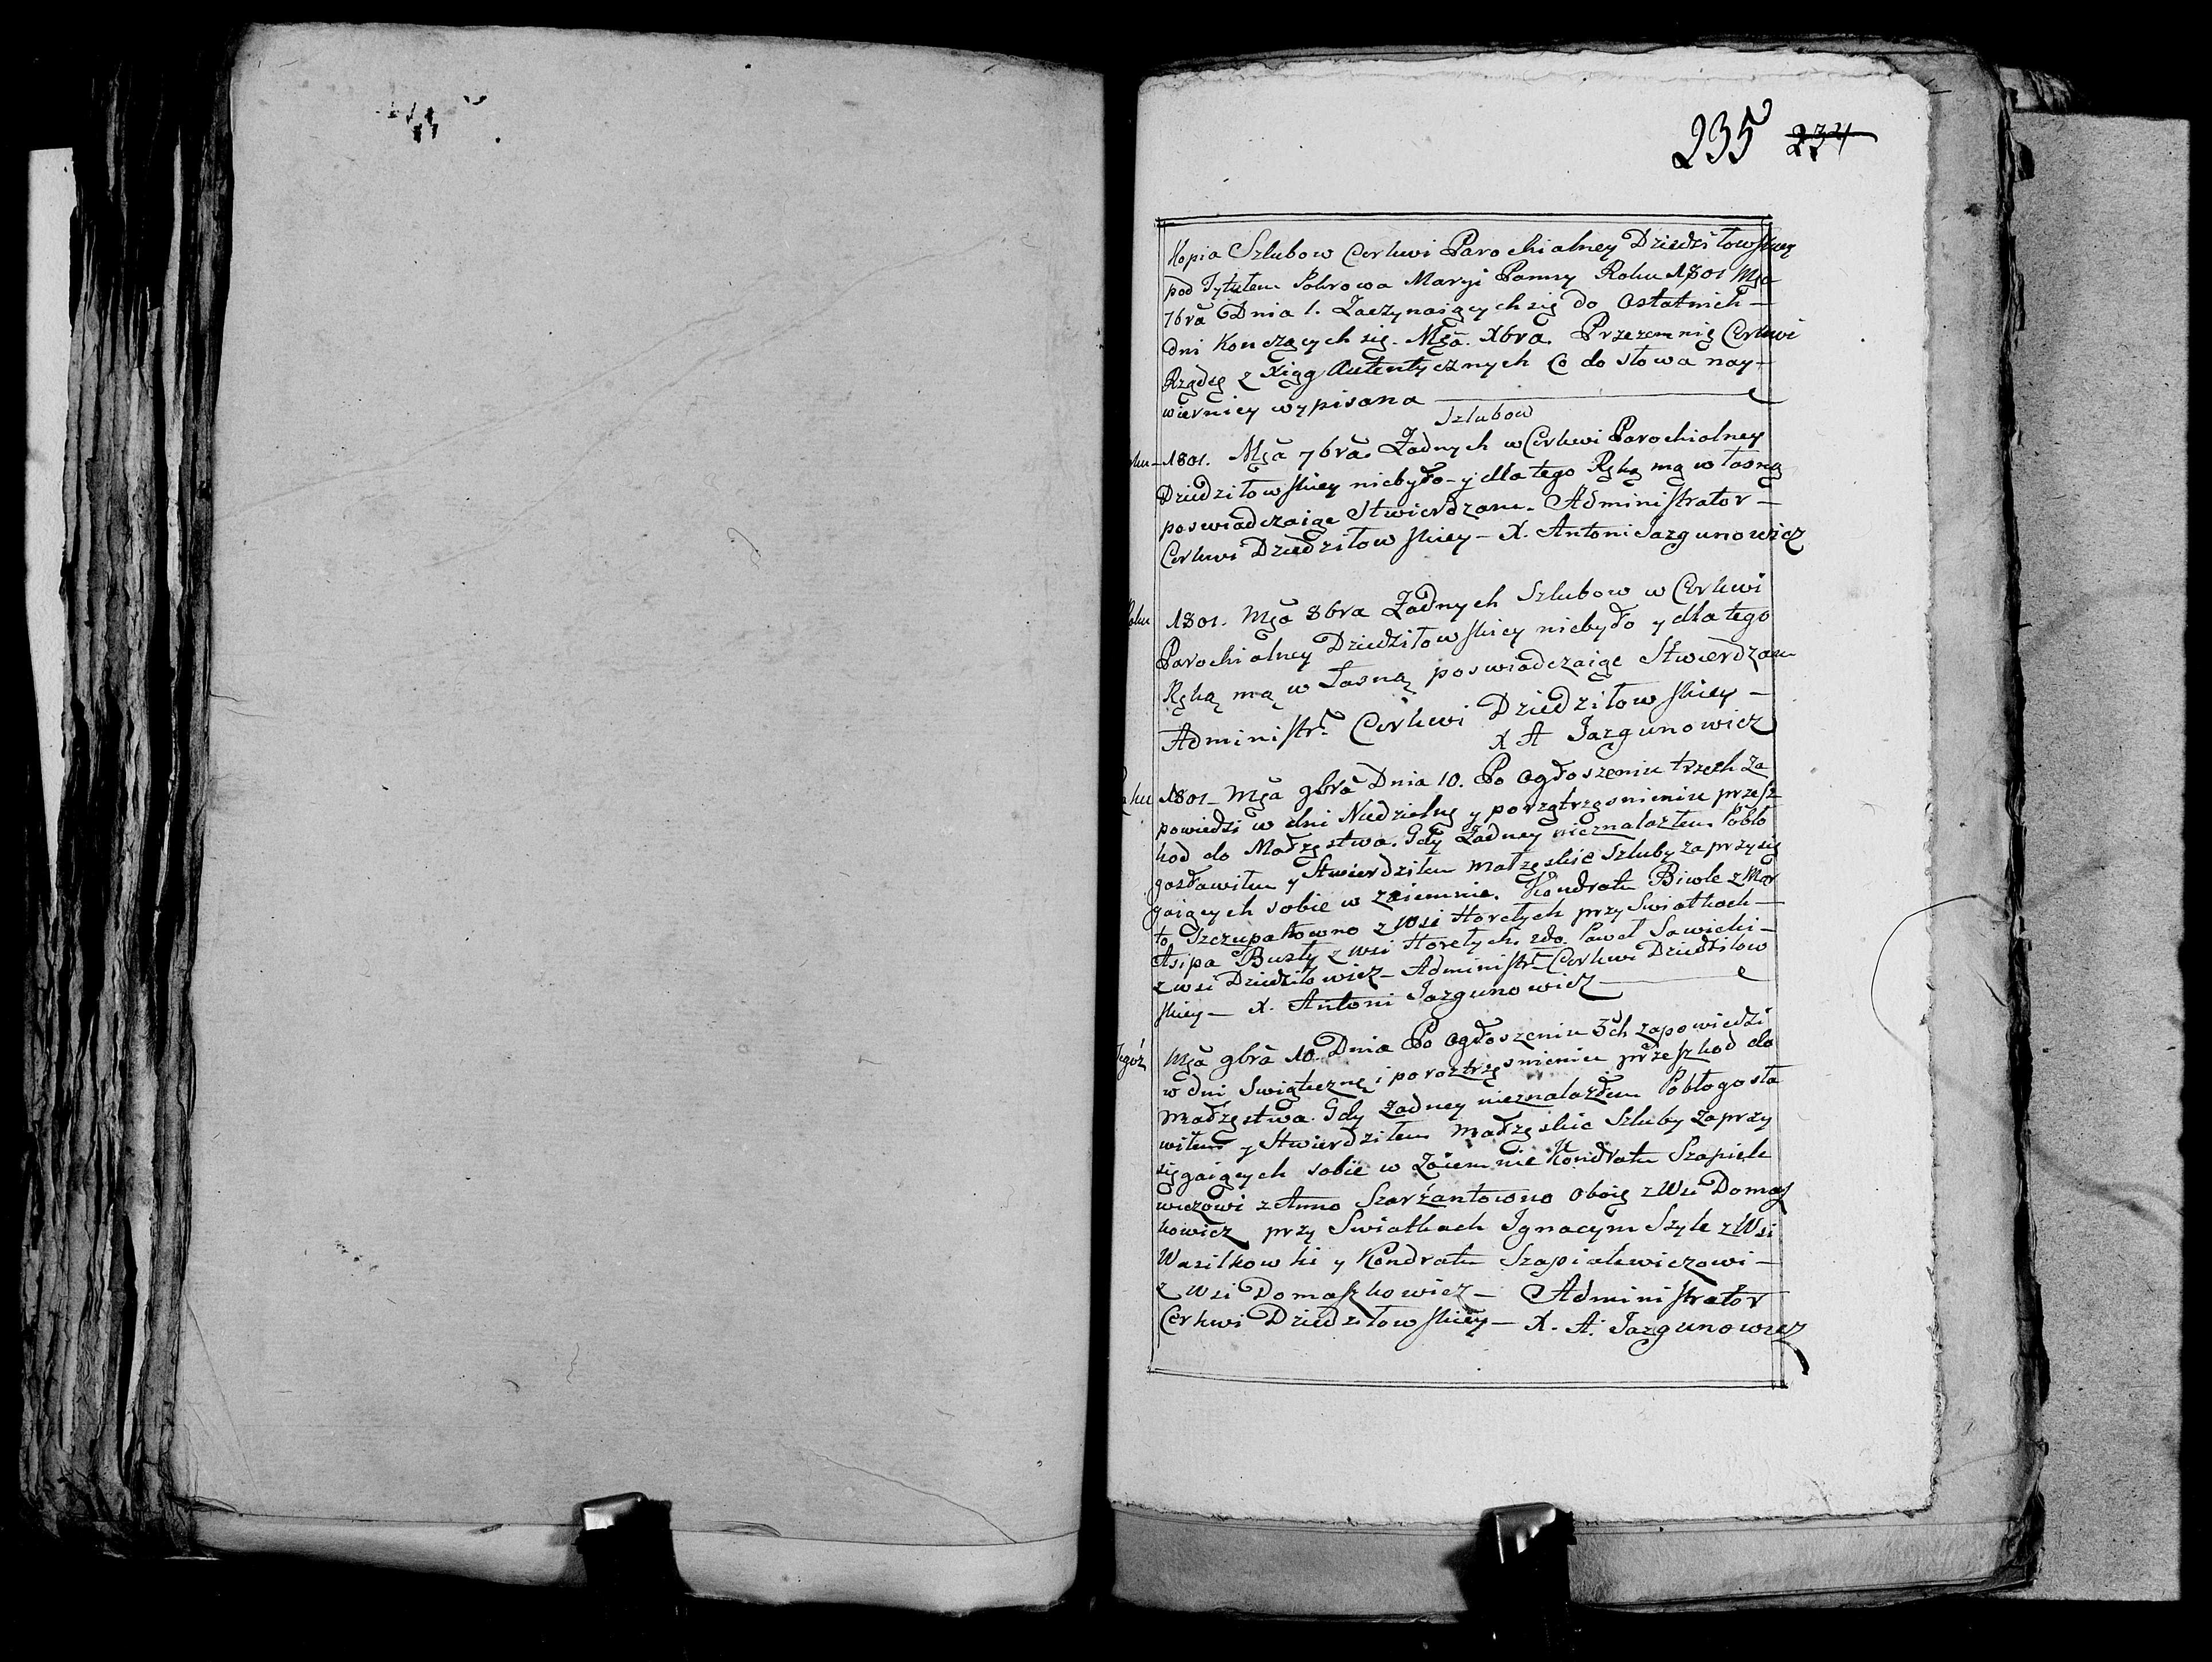 235 234
Kopia Szlubow Cerkwi Parochialney Dziedziłowskiey
pod Tytułem Pokrowa Maryi Panny Roku 1801 Mġa
7bra Dnia 1. Zaczynaiących się do Ostatnich
dni Konczących się. Mġa. Xbra. Przezemnię Cerkwi
Rządcę z Xiąg Autentycznych Co do słowa nay-
wierniey wypisana
Szlubow
1801. Mġa 7bra. Żadnych w Cerkwi Parochialney
Dziedziłowskiey niebyło - y dla tego Ręką mą własną
poswiadczaiąc Stwierdzam. Administrator -
Cerkwi Dziedziłowskiey - X. Antoni Jazgunowicz
Roku 1801. Mġa 8bra Żadnych Szlubow w Cerkwi
Parochialney Dziedziłowskiey niebyło y dla tego
Ręką mą własną poswiadczaiąc Stwierdzam
Administr. Cerkwi Dziedziłowskiey -
X A Jazgunowicz
Roku 1801 - Mġa 9bra Dnia 10. Po Ogłoszeniu trzech Za
powiedzi w dni Niedzielnę y porzątrząsnieniu przesz
kod do Małżęstwa. Gdy Żadney nieznalazłem Pobło
gosławiłem y Stwierdziłem małżęskie Szluby zaprzysię
gaiących sobie w zaiemnie. Kondratu Biwle z Mar
tą Szczupakowno z Wsi Horełych przy Swiatkach -
Asipa Busły z wsi Horełych 2do. Paweł Sawicki -
z wsi Dziedziłowicz - Administr. Cerkwi Dziedziłow
skiey - X. Antoni Jazgunowicz
Tegoż Mġa 9bra 10 Dnia Po Ogłoszeniu 3ch zapowiedzi
w dni Swiątecznę i poroztrząsnieniu przeszkod do
małżęstwa. Gdy żadney nieznalazłem Pobłogosła
wiłem y Stwierdziłem małżęskie Szluby zaprzy
sięgaiących sobie w Zaiemnie Kondratu Szapiele
wiczowi z Anno Szarżantowno oboie z Wsi Domasz
kowicz przy Swiatkach Ignacym Szyle z Wsi
Wasilkowki y Kondratu Szapialewiczowi -
z wsi Domaszkowicz - Administrator
Cerkwi Dziedziłowskiey - X. A. Jazgunowicz